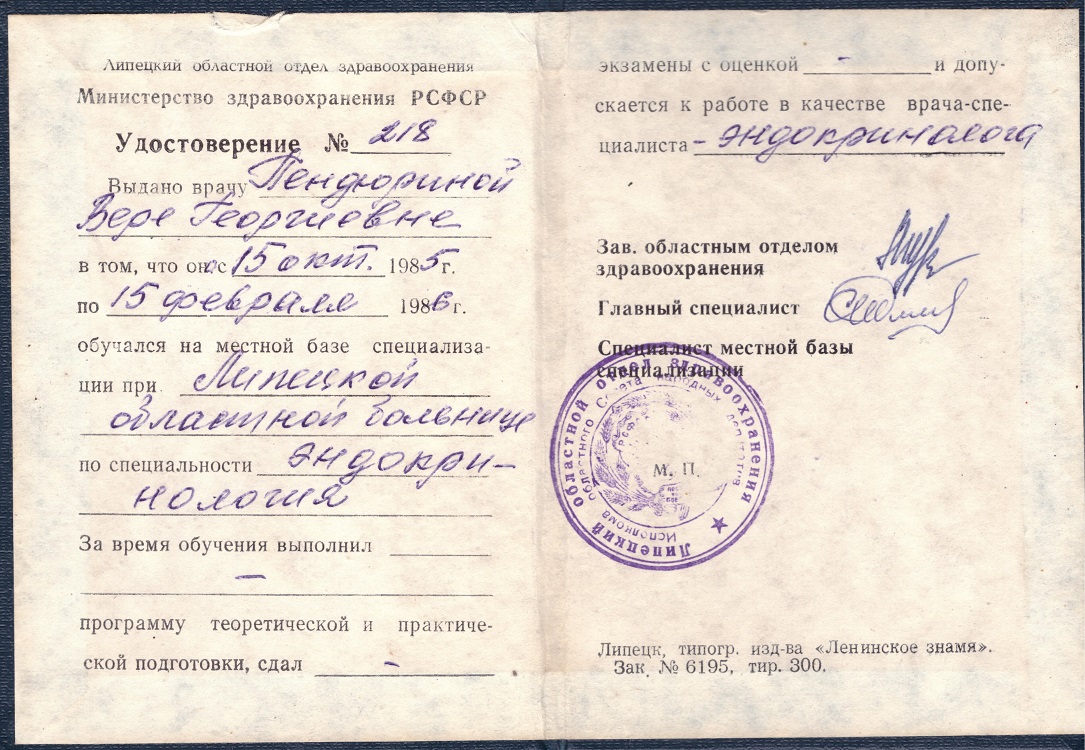 Липецкий областной отдел здравоохранения
Министерство здравоохранения РСФСР
Удостоверение № 218
Выдано врачу Пендюриной
Вере Георгиевне
в том, что он с 15 окт. 1985 г.
по 15 февраля 1986 г.
обучался на местной базе специализа-
ции при Липецкой
областной больнице
по специальности эндокри-
нология
За время обучения выполнил
—
программу теоретической и практиче-
ской подготовки, сдал –
экзамены с оценкой – и допу-
скается к работе в качестве врача-спе-
циалиста - эндокринолога
Зав. областным отделом
здравоохранения
Главный специалист
Специалист местной базы
специализации
Липецкий областной отдел здравоохранения
Исполкома областного Совета народных депутатов
РСФСР
М. П.
Липецк, типогр. изд-ва «Ленинское знамя».
Зак. № 6195, тир. 300.